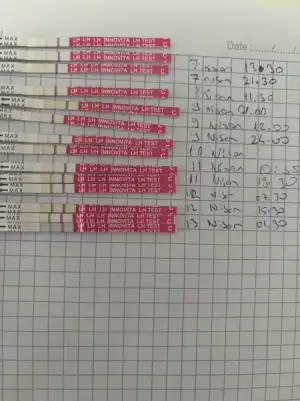 Date : ...../...../.....
MAX LH LH LH INNOVITA LH TEST C
MAX LH LH LH INNOVITA LH TEST C 7 nisan 12.30
MAX LH LH LH INNOVITA LH TEST C 7 nisan 21.30
MAX LH LH LH INNOVITA LH TEST C 8 Nisan 11.30
MAX LH LH LH INNOVITA LH TEST C 8 Nisan 21.00
MAX LH LH LH INNOVITA LH TEST C 9 Nisan 12.00
MAX LH LH LH INNOVITA LH TEST C 9 Nisan 24.00
MAX LH LH LH INNOVITA LH TEST C 10 Nisan
MAX LH LH LH INNOVITA LH TEST C 11 Nisan
MAX LH LH LH INNOVITA LH TEST C 11 Nisan
MAX LH LH LH INNOVITA LH TEST C 12 07.30
MAX LH LH LH INNOVITA LH TEST C 12 Nisan
MAX LH LH LH INNOVITA LH TEST C 13 Nisan 01.30